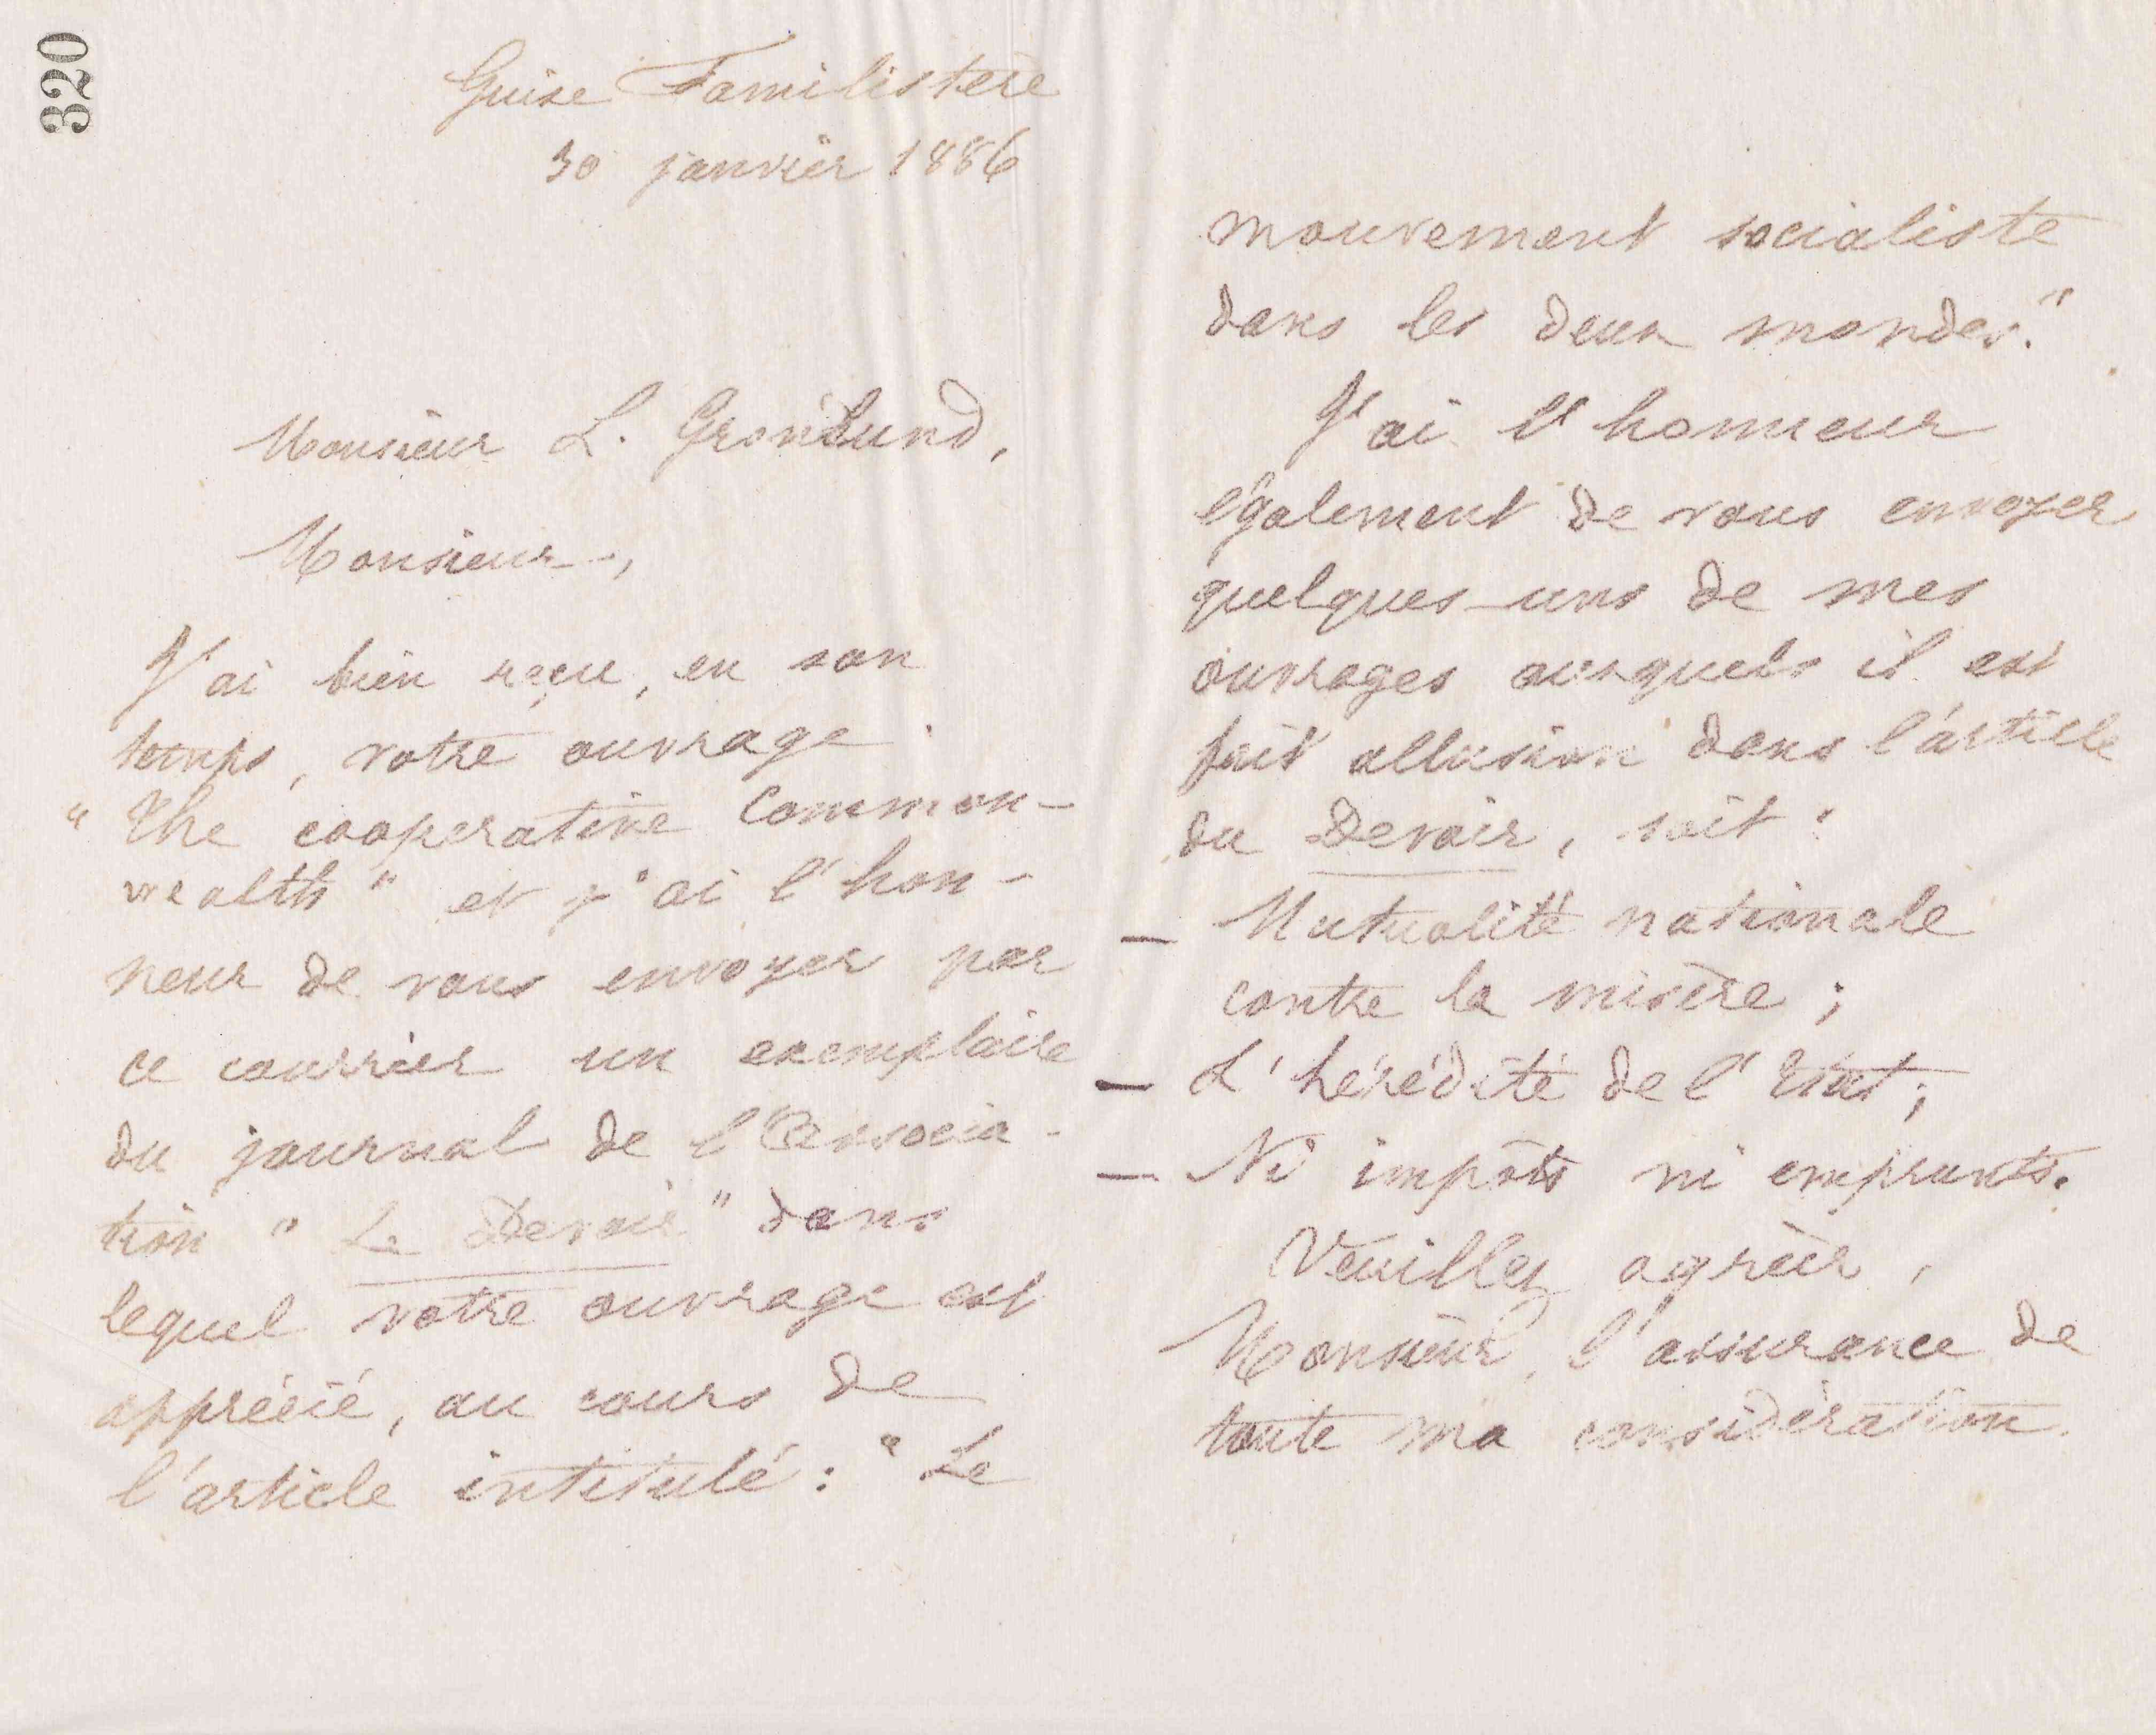 320
Guise Familistère
30 janvier 1886
Monsieur L. Gronlund,
Monsieur,
J'ai bien reçu, en son
temps, votre ouvrage
"The cooperative Common-
wealth" et j'ai l'hon-
neur de vous envoyer par
ce courrier un exemplaire
du journal de l'Associa-
tion "Le Devoir" dans
lequel votre ouvrage est
apprécié, au cours de
l'article intitulé : "Le
mouvement socialiste
dans les deux mondes."
J'ai l'honneur
également de vous envoyer
quelques-uns de mes
ouvrages auxquels il est
fait allusion dans l'article
du Devoir, soit :
— Mutualité nationale
contre la misère ;
— L'hérédité de l'Etat ;
— Ni impôts ni emprunts.
Veuillez agréer,
Monsieur, l'assurance de
toute ma considération.